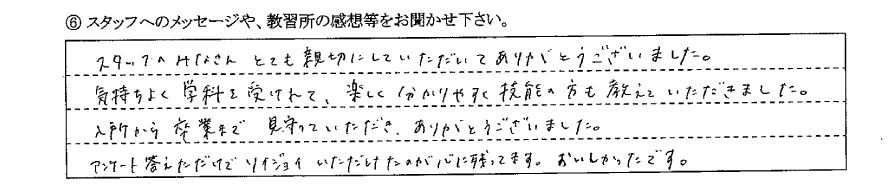 ⑥ スタッフへのメッセージや、教習所の感想等をお聞かせ下さい。
スタッフのみなさん とても親切にしていただいてありがとうございました。
気持ちよく学科を受けれて、楽しく分かりやすく技能の方も教えていただきました。
入所から卒業まで 見守っていただき、ありがとうございました。
アンケート答えただけでソイジョイいただけたのが心に残ってます。おいしかったです。